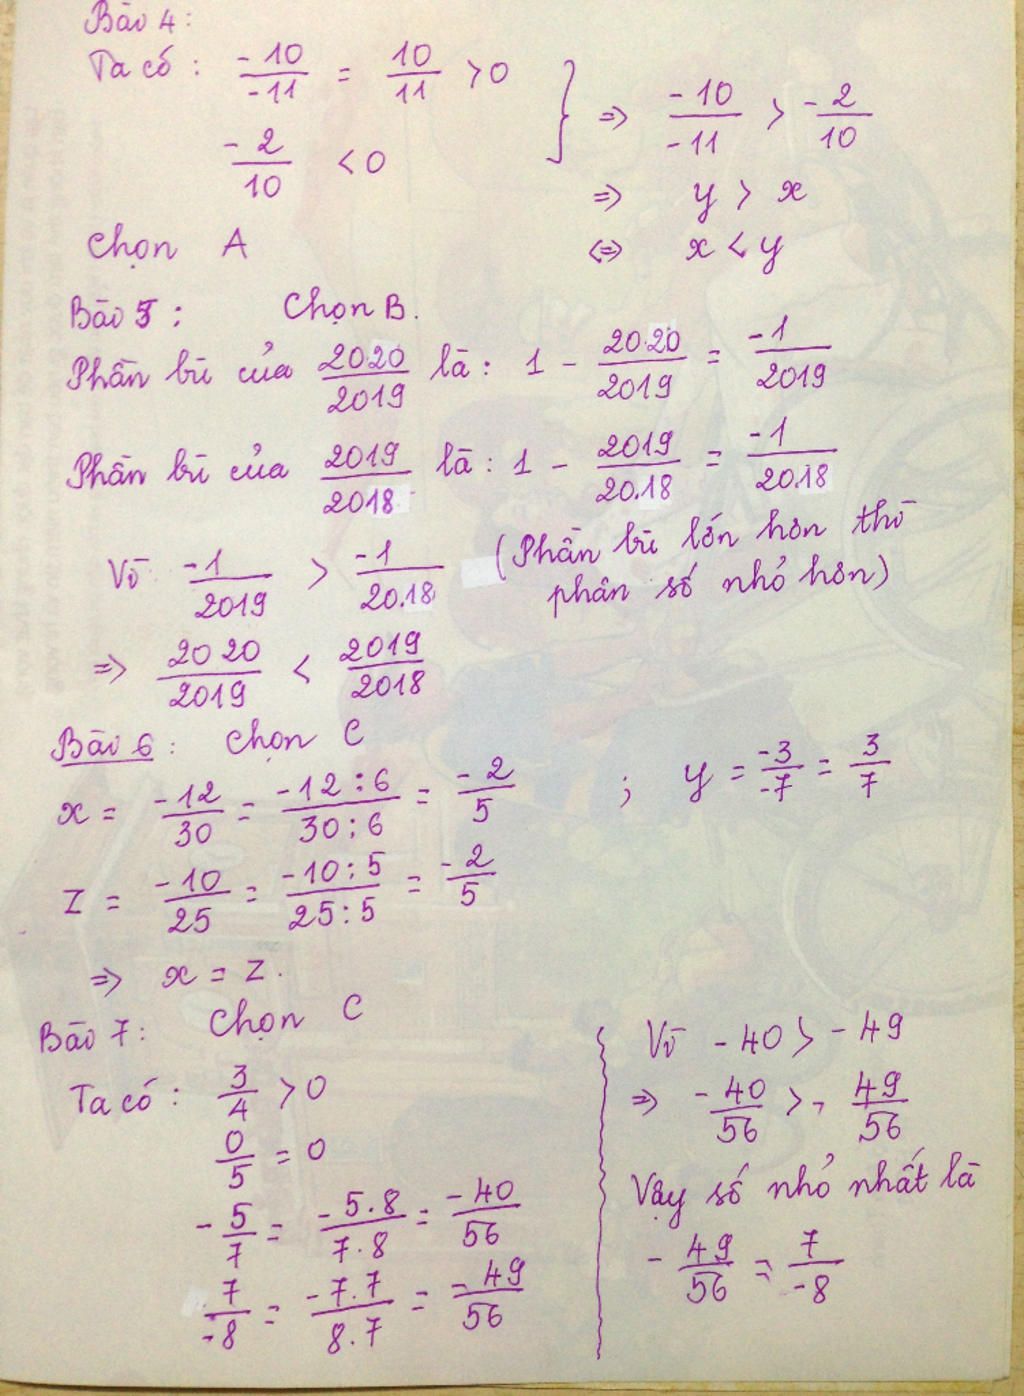 Bài 4:
Ta có : -10/-11 = 10/11 > 0
-2/10 < 0
} => -10/-11 > -2/10
=> y > x
Chọn A <=> x < y
Bài 5 : Chọn B.
Phần bù của 2020/2019 là : 1 - 2020/2019 = -1/2019
Phần bù của 2019/2018 là : 1 - 2019/2018 = -1/2018
Vì -1/2019 > -1/2018 (Phần bù lớn hơn thì
phân số nhỏ hơn)
=> 2020/2019 < 2019/2018
Bài 6 : Chọn C
x = -12/30 = -12:6/30:6 = -2/5 ; y = -3/-7 = 3/7
z = -10/25 = -10:5/25:5 = -2/5
=> x = z.
Bài 7 : Chọn C
Ta có : 3/4 > 0
0/5 = 0
-5/7 = -5.8/7.8 = -40/56
7/-8 = -7.7/8.7 = -49/56
Vì -40 > -49
=> -40/56 > -49/56
Vậy số nhỏ nhất là
-49/56 = 7/-8